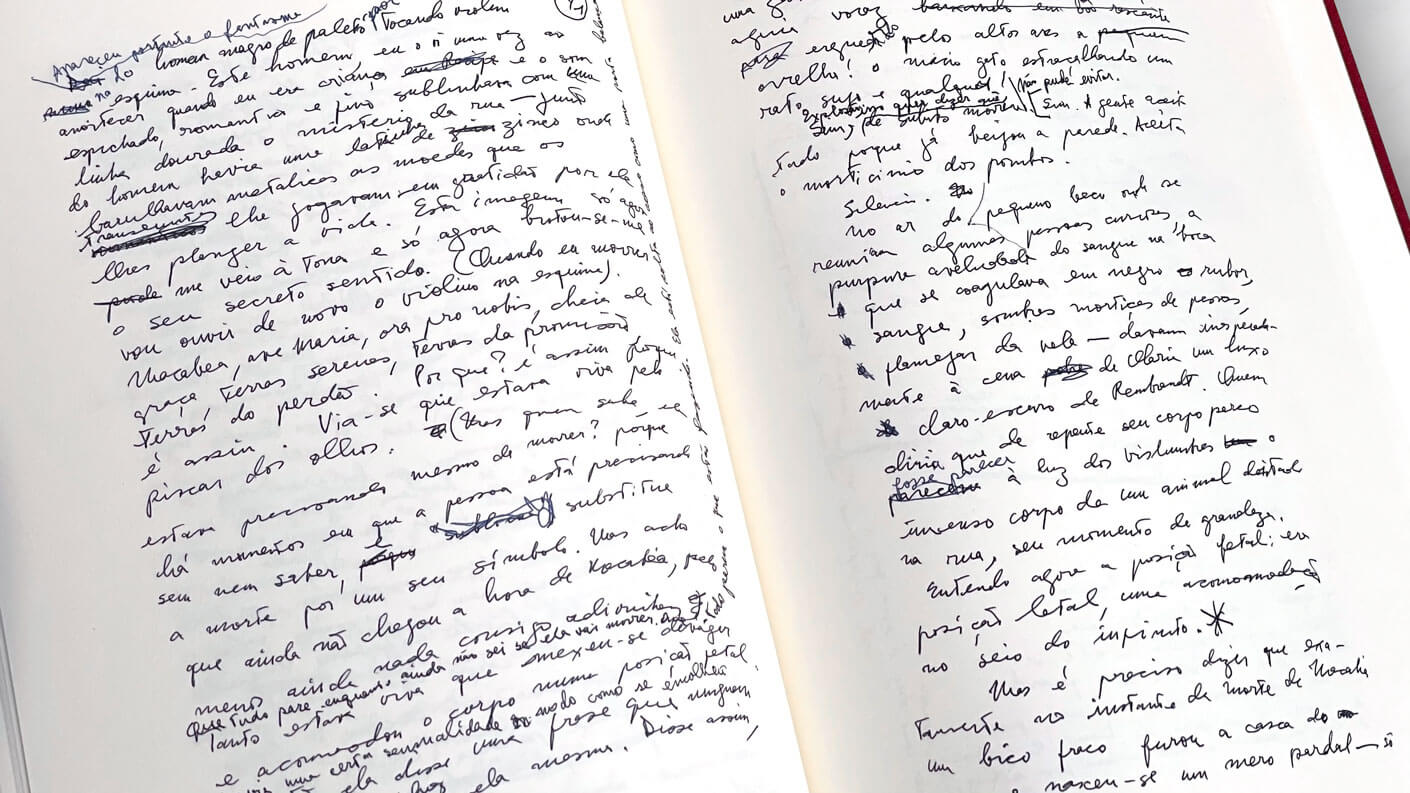 Apareceu portanto o fantasma
do homem magro de paletó puído tocando violino
na esquina. Este homem, eu o vi uma vez ao
anoitecer quando eu era criança em Recife e o som
espichado, romântico e fino sublinhava com uma
linha dourada o mistério da rua — junto
do homem havia uma latinha de zinco onde
barulhavam metálicas as moedas que os
transeuntes lhe jogavam em gratidão por ele
lhes planger a vida. Esta imagem só agora
me veio à tona e só agora brotou-se-me
o seu secreto sentido. (Quando eu morrer
vou ouvir de novo o violino na esquina).
Macabéa, ave Maria, ora pro nobis, cheia de
graça, terras serenas, terras da promissão
Terras do perdão. Por que? é assim porque
é assim. Via-se que estava viva pelo
piscar dos olhos. (Mas quem sabe se
estava precisando mesmo de morrer? porque
há momentos em que a pessoa está precisando
sem nem saber, e substitue
a morte por um seu símbolo. Mas acho
que ainda não chegou a hora de Macabéa, pelo
menos ainda nada consigo adivinhar
Que tudo pare enquanto ainda não sei se ela vai morrer.
Tanto estava viva que mexeu-se devagar
e acomodou o corpo numa posição fetal.
uma certa sensualidade no modo como se encolheu
ela disse uma frase que ninguém
ela mesma. Disse assim,
uma
águia voraz
erguendo pelo altos ares a
ovelha! o macio gato estraçalhando um
rato sujo e qualquer!
não pude evitar.
Sim, de súbito morreu
Sim. A gente aceita
tudo porque já beijou a parede. Aceita
o morticínio dos pombos.
Silêncio.
no ar do pequeno beco onde se
reuniam algumas pessoas curiosas, a
púrpura aveludada do sangue na boca
que se coagulava em negro rubor,
sangue, sombras mortiças de pessoas
flamejar da vela — davam inespera-
mente à cena de Maria um luxo
claro-escuro de Rembrandt. Quem
diria que de repente seu corpo parco
fosse parecer
à luz dos vislumbres o
imenso corpo de um animal deitado
na rua, seu momento de grandeza.
Entendo agora a posição fetal: era
posição letal, uma acomodação
no seio do infinito.
Mas é preciso dizer que exa-
tamente no instante da morte de Macabéa
um bico fraco furou a casca do
nasceu-se um mero pardal — só